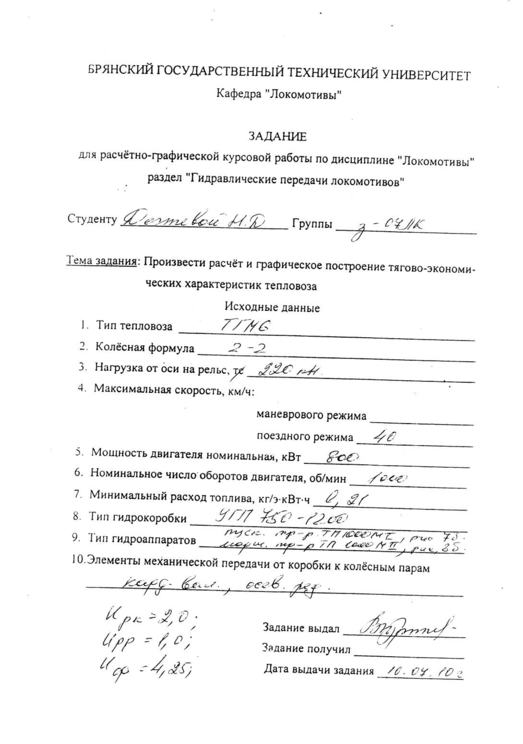 БРЯНСКИЙ ГОСУДАРСТВЕННЫЙ ТЕХНИЧЕСКИЙ УНИВЕРСИТЕТ
Кафедра "Локомотивы"
ЗАДАНИЕ
для расчётно-графической курсовой работы по дисциплине "Локомотивы"
раздел "Гидравлические передачи локомотивов"
Студенту Н.Д Группы з-07ЛК
Тема задания: Произвести расчёт и графическое построение тягово-экономи-
ческих характеристик тепловоза
Исходные данные
1. Тип тепловоза ТГМ6
2. Колёсная формула 2-2
3. Нагрузка от оси на рельс, 220 кН
4. Максимальная скорость, км/ч:
маневрового режима
поездного режима 40
5. Мощность двигателя номинальная, кВт 800
6. Номинальное число оборотов двигателя, об/мин 1000
7. Минимальный расход топлива, кг/э·кВт·ч 0,21
8. Тип гидрокоробки УГП 750-1200
9. Тип гидроаппаратов пуск. тр-р ТП1000МI, рис
марш. тр-р ТП 1000МII, рис
10. Элементы механической передачи от коробки к колёсным парам
кард. вал., осев. ред.
Uрк = 2,0;
Uрр = 1,0;
Uор = 4,25;
Задание выдал
Задание получил
Дата выдачи задания 10.04.10